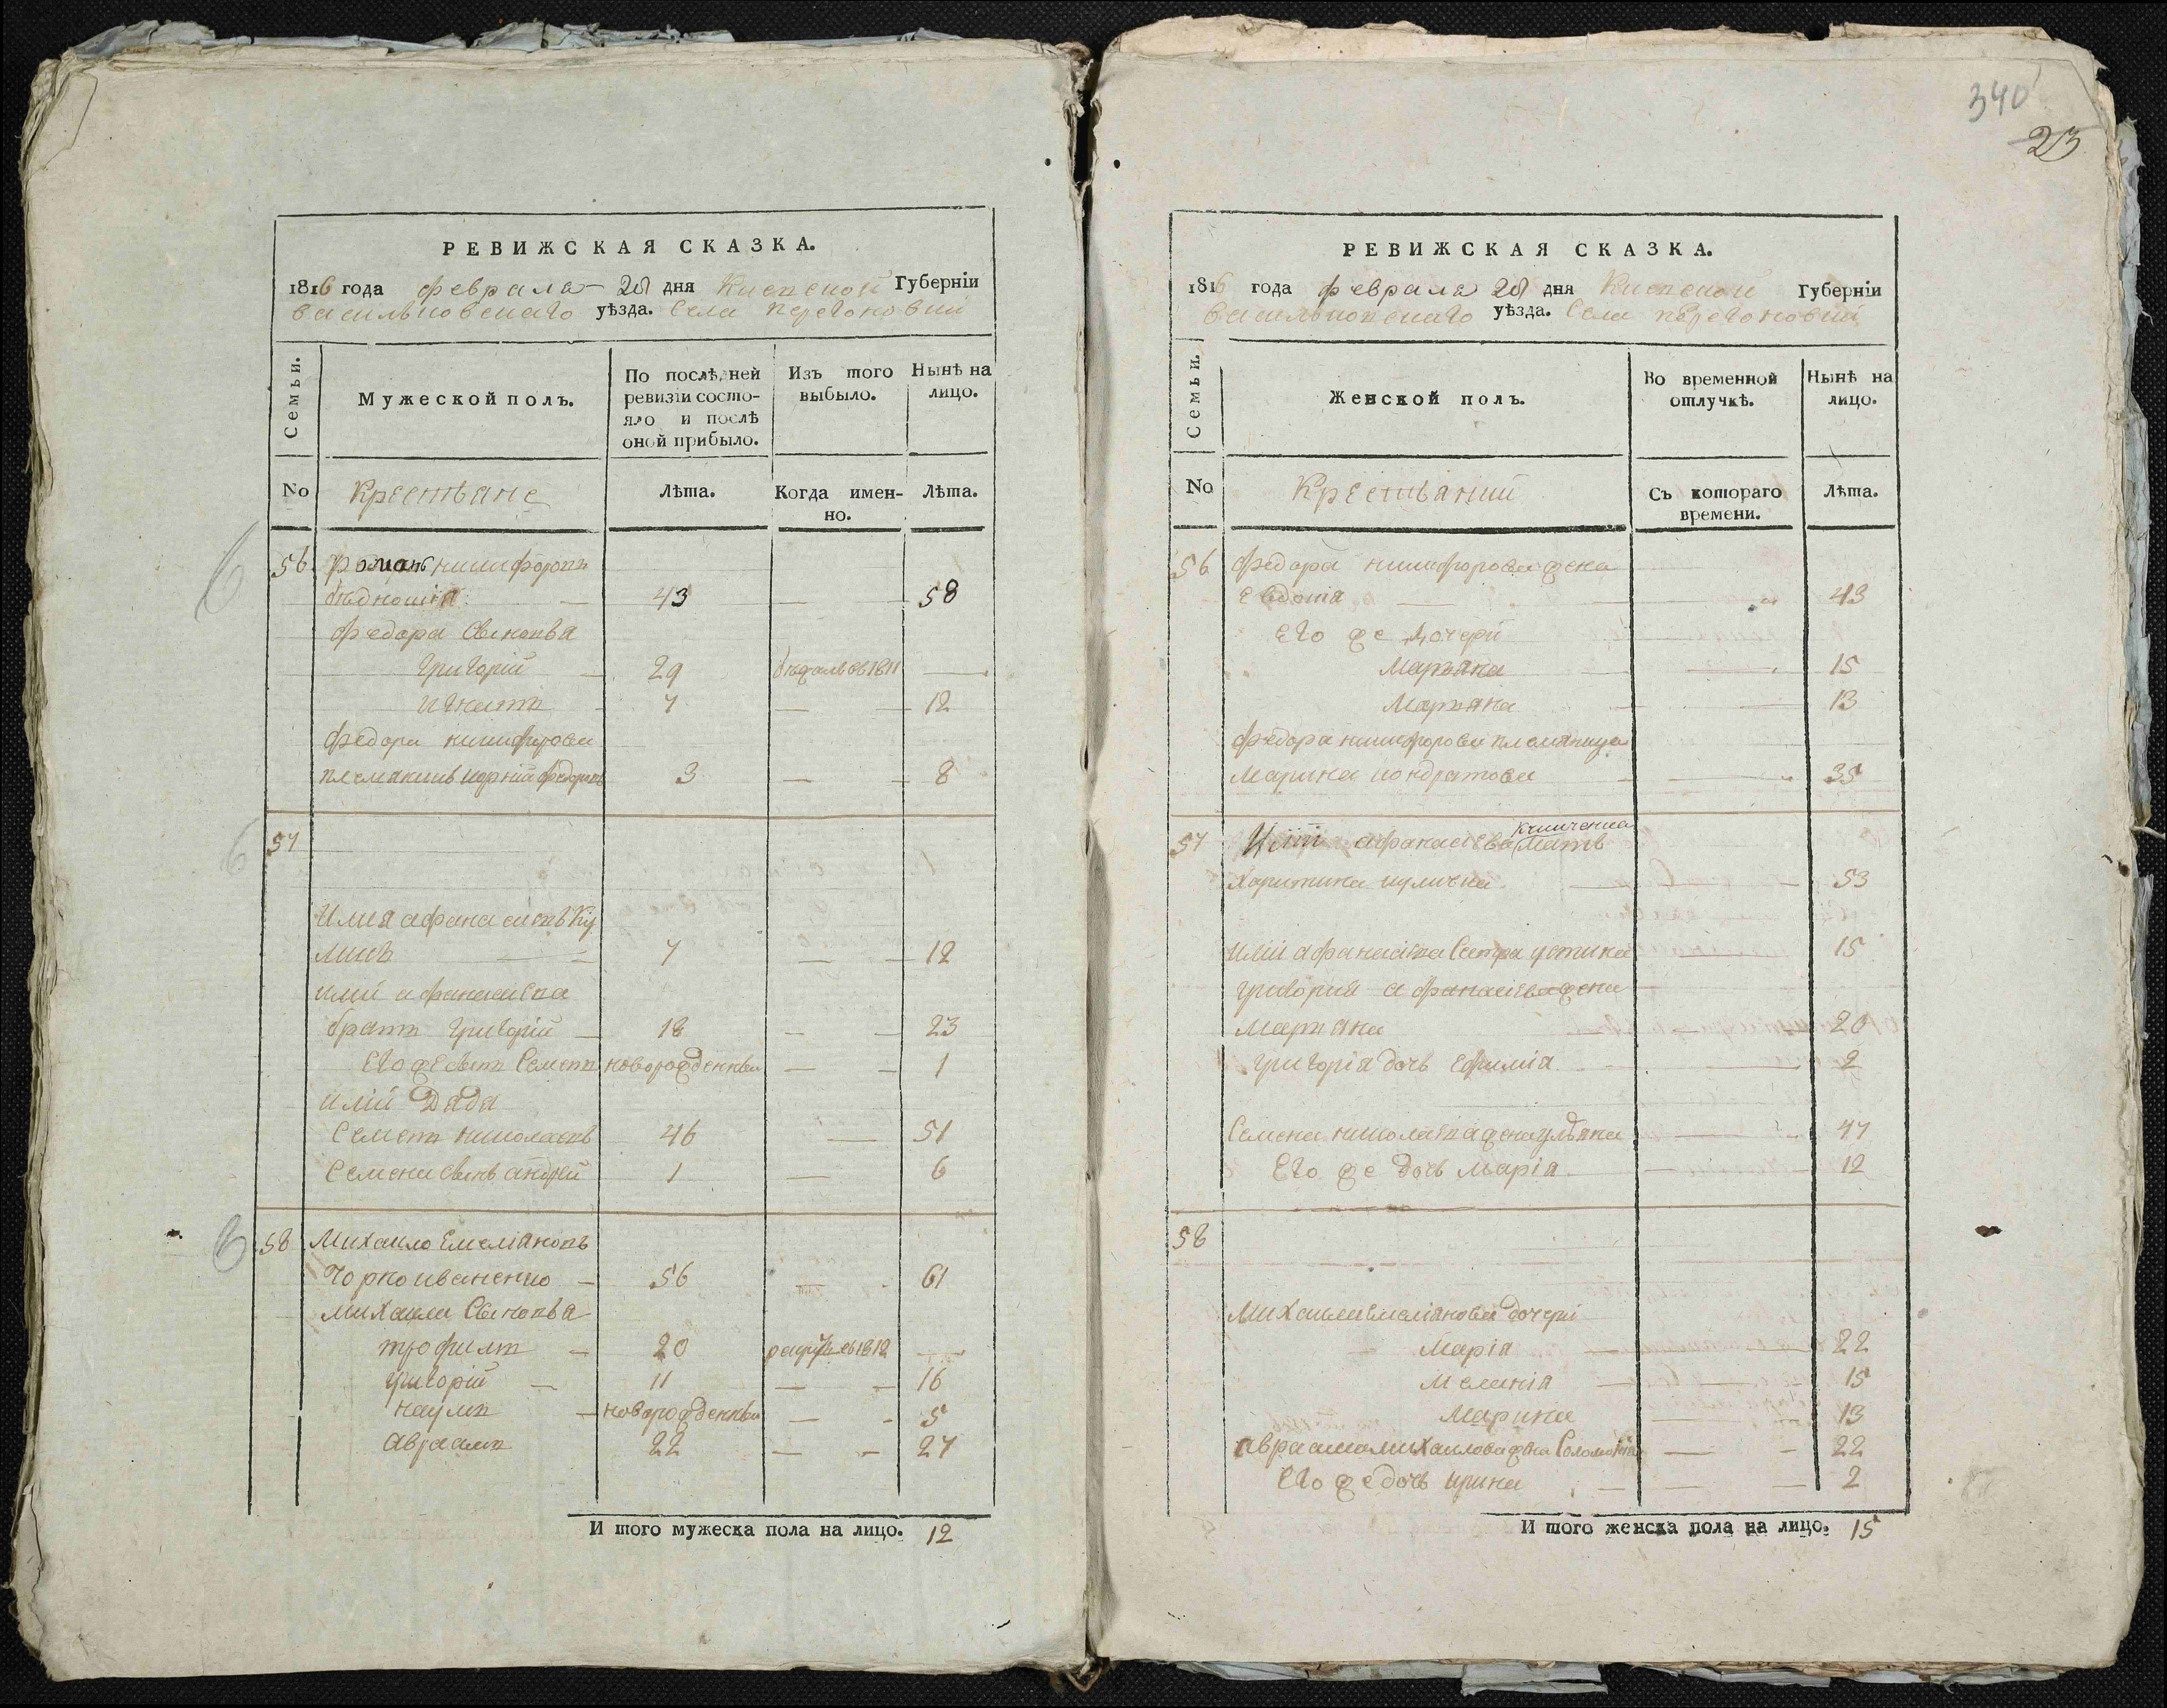 340
23
РЕВИЖСКАЯ СКАЗКА.
1816 года февраля 28 дня Киевской Губерніи
васильковскаго уѣзда. Села перегоновки
Семьи.
Мужеской полъ.
По послѣдней ревизіи состояло и послѣ оной прибыло.
Изъ того выбыло.
Нынѣ на лицо.
No
Крестьяне
Лѣта.
Когда именно.
Лѣта.
56 никифоровъ
43 — 58
федора Сыновья
григорій — 29 бѣжалъ въ 1811 —
игнатъ 7 — 12
федора никифорова
племянникъ федоровъ 3 — 8
57
Илия афанасиевъ Ку
личъ — 7 — 12
илии афанасіева
братъ григорій — 18 — 23
Его же сынъ Семенъ новорожденный — 1
илии Дядя
Семенъ николаевъ 46 — 51
Семена сынъ андрей 1 — 6
58 Михаило Емеліяновъ
Чорноиваненко — 56 — 61
михаила Сыновья
трофимъ — 20 рекрутъ въ 1812 —
григорій — 11 — 16
наумъ — новорожденный — 5
авраамъ 22 — 27
И того мужеска пола на лицо. 12
РЕВИЖСКАЯ СКАЗКА.
1816 года февраля 28 дня Киевской Губерніи
васильковскаго уѣзда. Села перегоновки
Семьи.
Женской полъ.
Во временной отлучкѣ.
Нынѣ на лицо.
No
Крестьянки
Съ котораго времени.
Лѣта.
56 федора никифорова жена
Евдокія — 43
Его же дочери
Марьяна — 15
Марьяна — 13
федора никифорова племяница
Марина кондратова — 35
57 афанасіева мать
Харитина куличка — 53
илии афанасіева Сестра устина 15
григорія афанасіева жена
марьяна — 20
григорія дочь Ефимія — 2
Семена николаева жена ульяна — 47
Его же дочь марія — 12
58
Михаила емеліянова дочери
Марія — 22
Меланія — 15
Марина — 13
авраама михаилова жена Соломонія — 22
Его же дочь ирина — 2
И того женска пола на лицо. 15